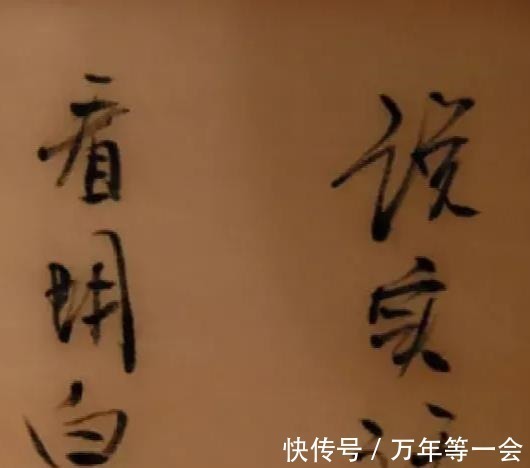 说实
看明白
快传号/万年等一会